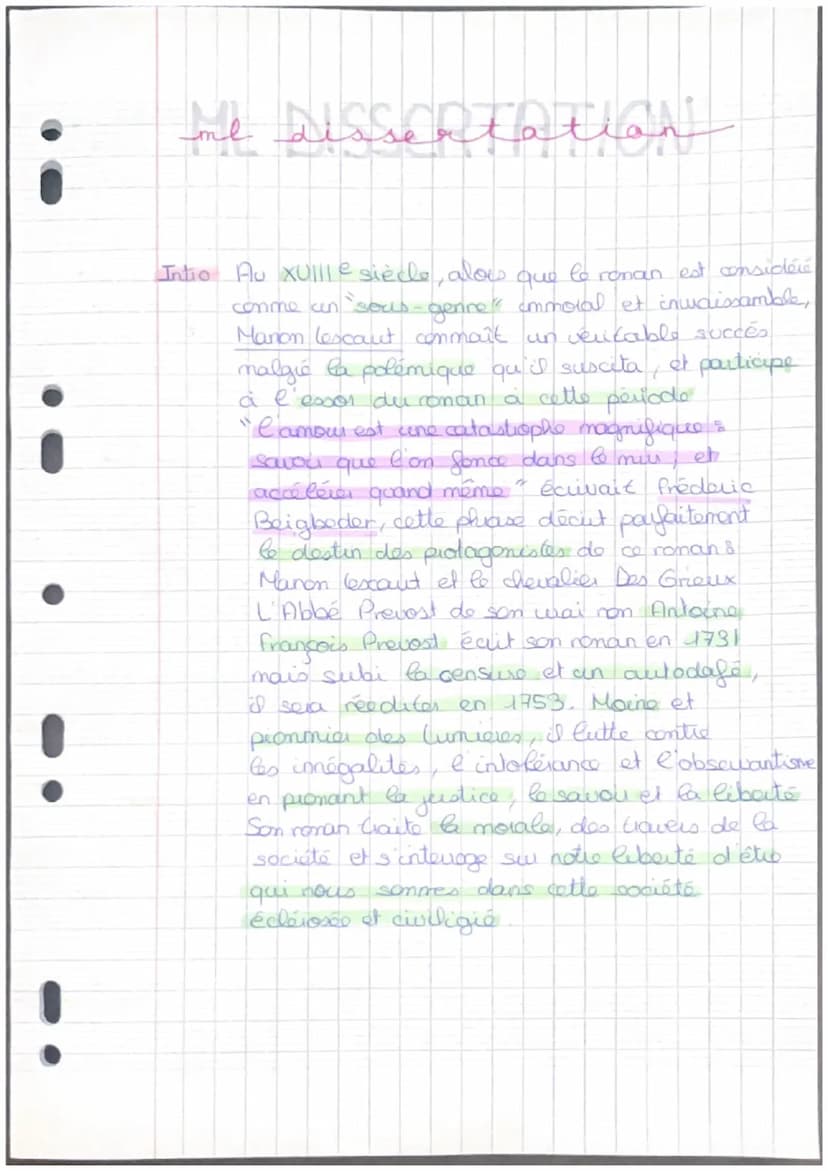 ML DISSERTATION
ml dissertation
Intro Au XVIIIe siècle, alors que le roman est considéré
comme un "sous-genre" immoral et invraissamble,
Manon Lescaut connaît un véritable succès
malgré la polémique qu'il suscita, et participe
à l'essor du roman à cette période
"L'amour est une catastrophe magnifique :
savoir que l'on fonce dans le mur, et
accélérer quand même" écrivait Fréderic
Beigbeder, cette phrase décrit parfaitement
le destin des protagonistes de ce roman :
Manon Lescaut et le chevalier Des Grieux
L'Abbé Prevost de son vrai nom Antoine
François Prevost écrit son roman en 1731
mais subi la censure et un autodafé,
il sera réedités en 1753. Moine et
pionnier des Lumières, il lutte contre
les innégalités, l'intolérance et l'obscurantisme
en pronant la justice, le savoir et la liberté
Son roman traite la morale, des travers de la
société et s'interroge sur notre liberté d'être
qui nous sommes dans cette société
écléirosée et civiligié.